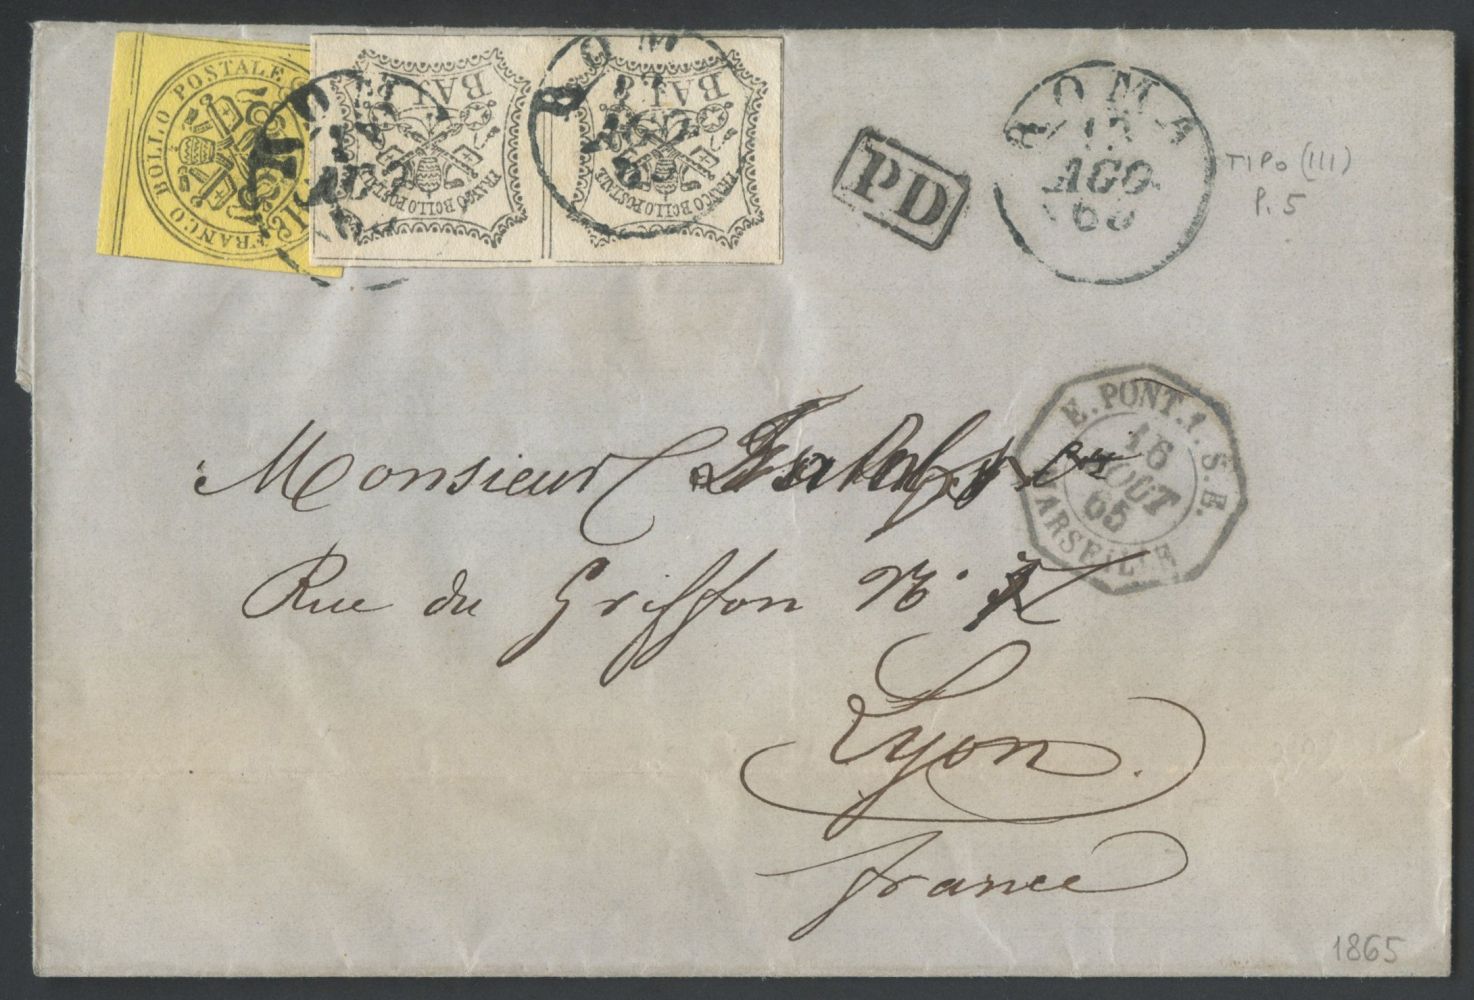 FRANCO BOLLO POSTALE
BAJ. 8
FRANCO BOLLO POSTALE
BAJ. 8
FRANCO BOLLO POSTALE
ROMA
AGO
ROMA
AGO
65
PD
ROMA
13
AGO
65
TIPO (III)
P. 5
E. PONT. 1. S. E.
16
AOUT
65
MARSEILLE
Monsieur
Rue du Griffon No.
Lyon.
France
1865